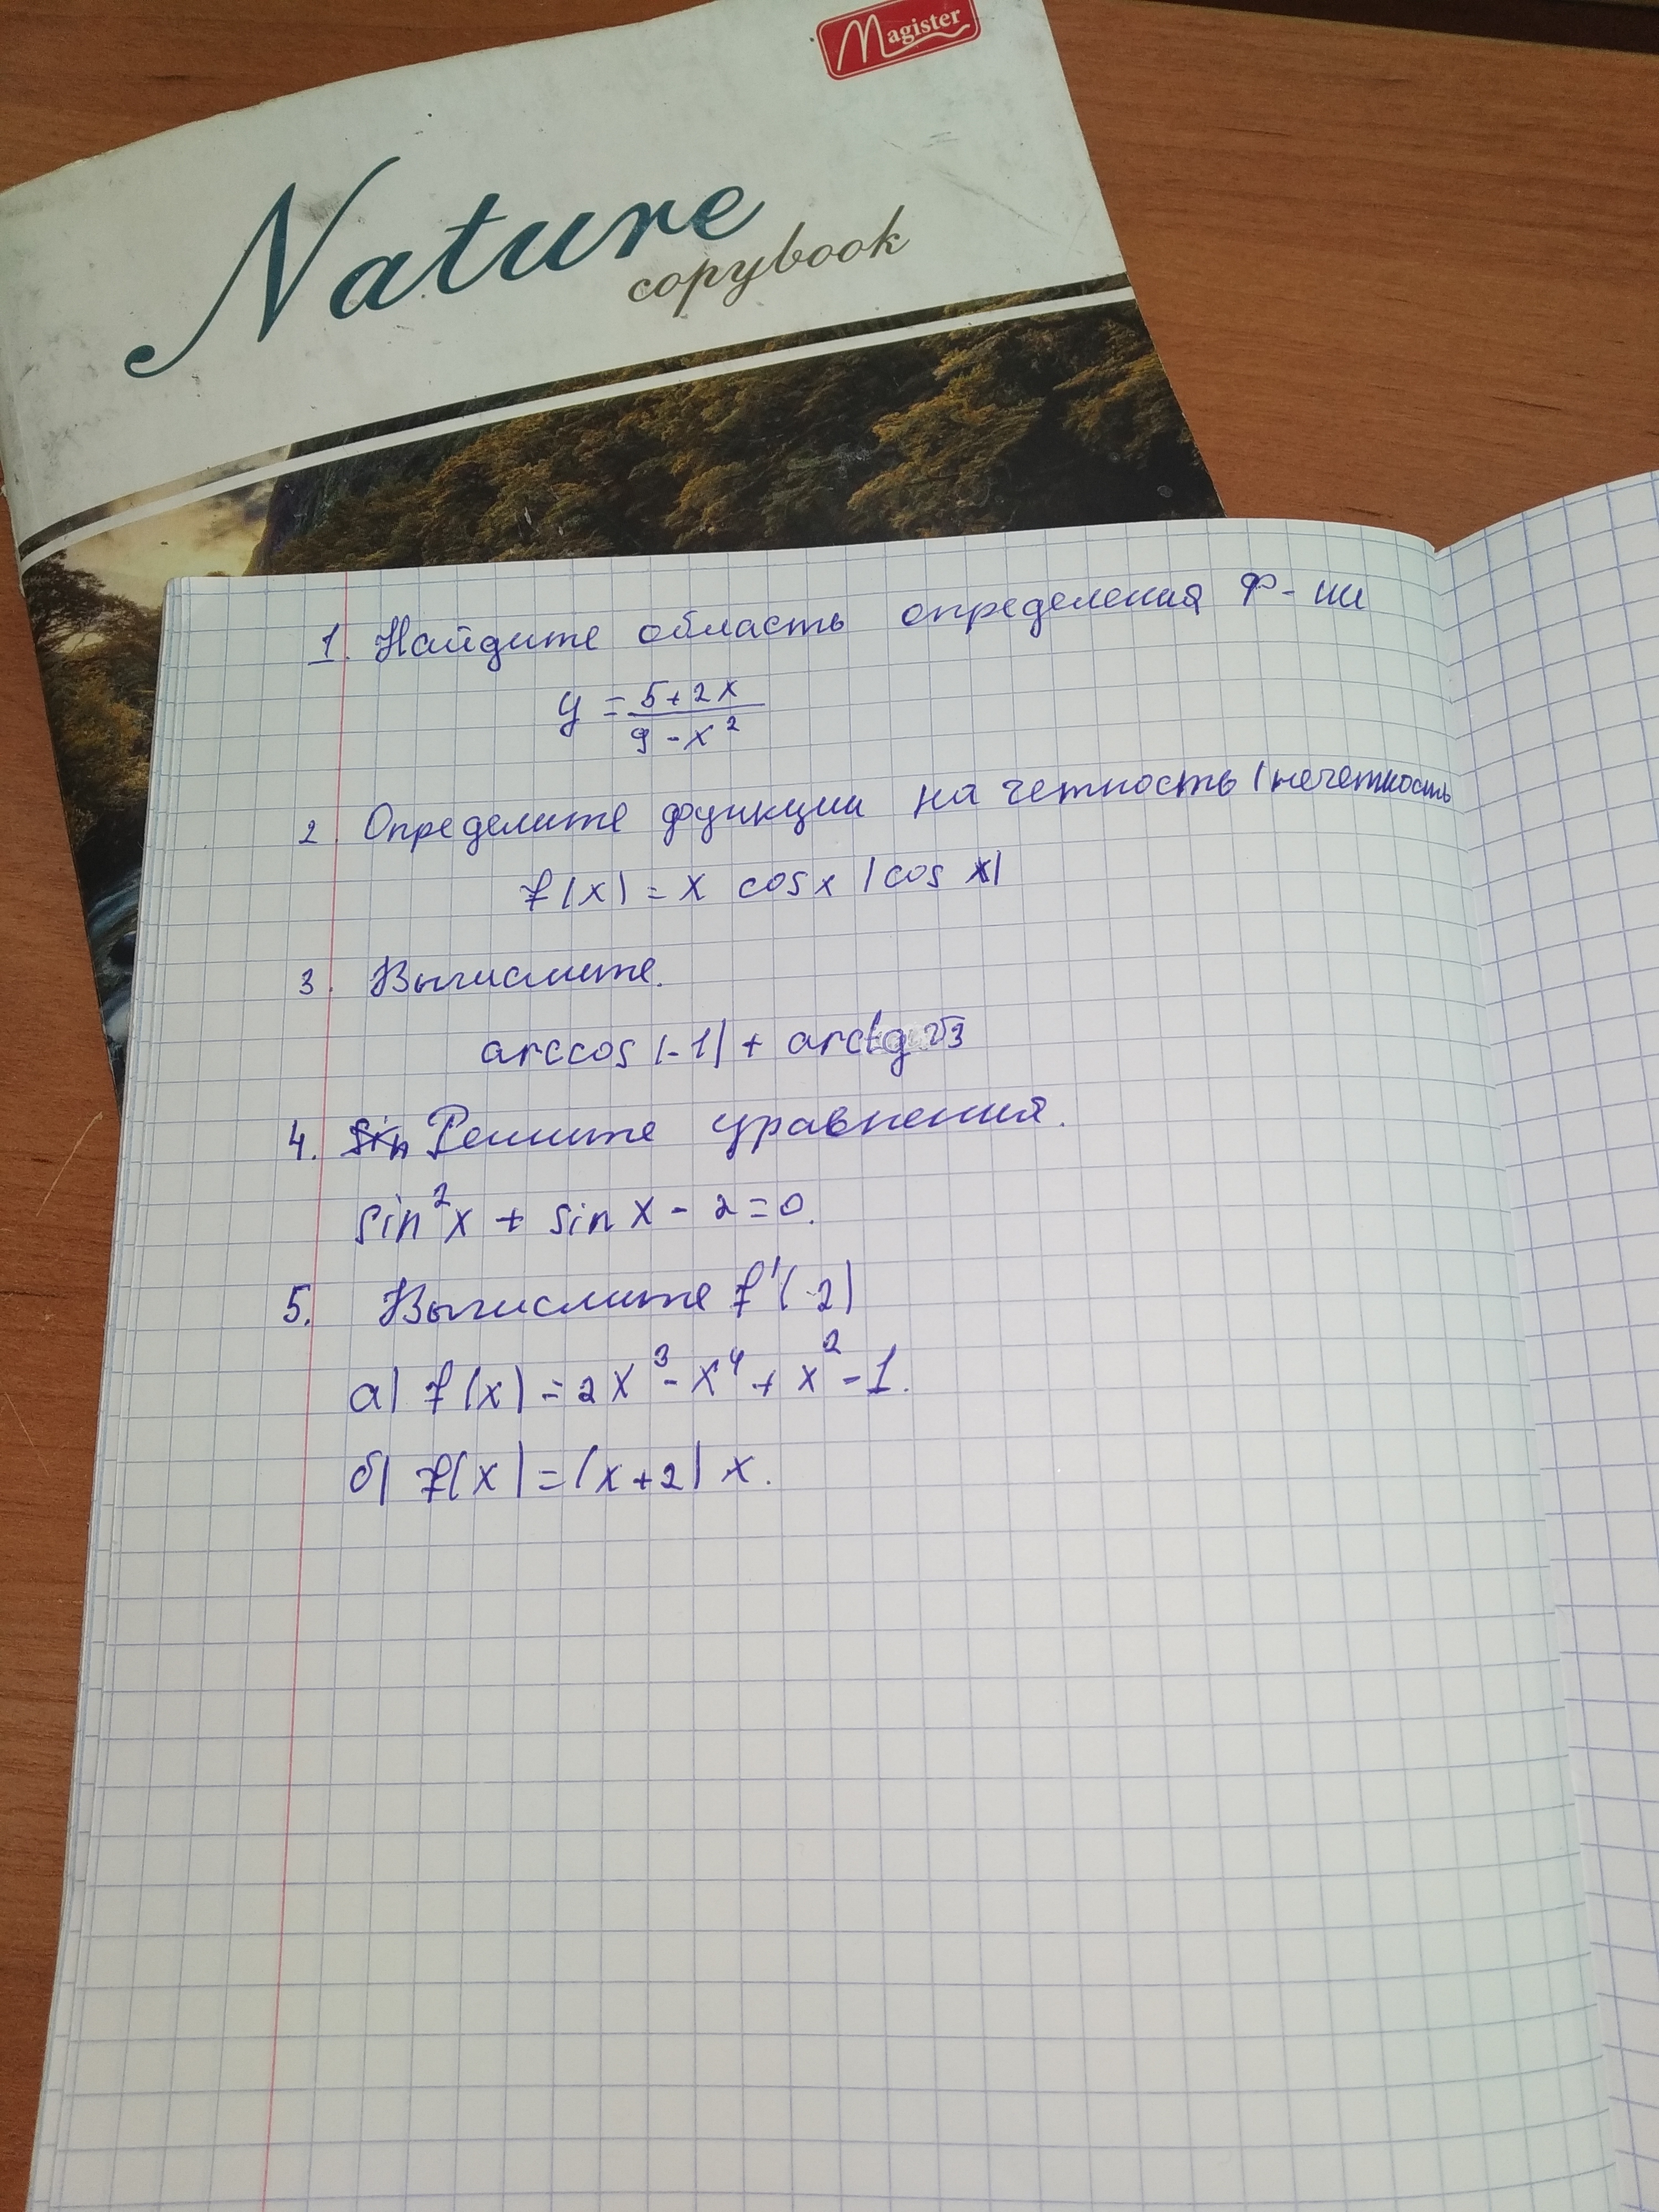 Magister
Nature
copybook
1. Найдите область определения ф-ии
y = (5+2x)/(9-x²)
2. Определите функции на четность (нечетность
f(x) = x cosx (cos x)
3. Вычислите.
arccos(-1) + arctg √3
4. Sin Решите уравнения.
sin²x + sin x - 2 = 0.
5. Вычислите f'(-2)
а) f(x) = 2x³ - x⁴ + x² - 1.
б) f(x) = (x+2) x.